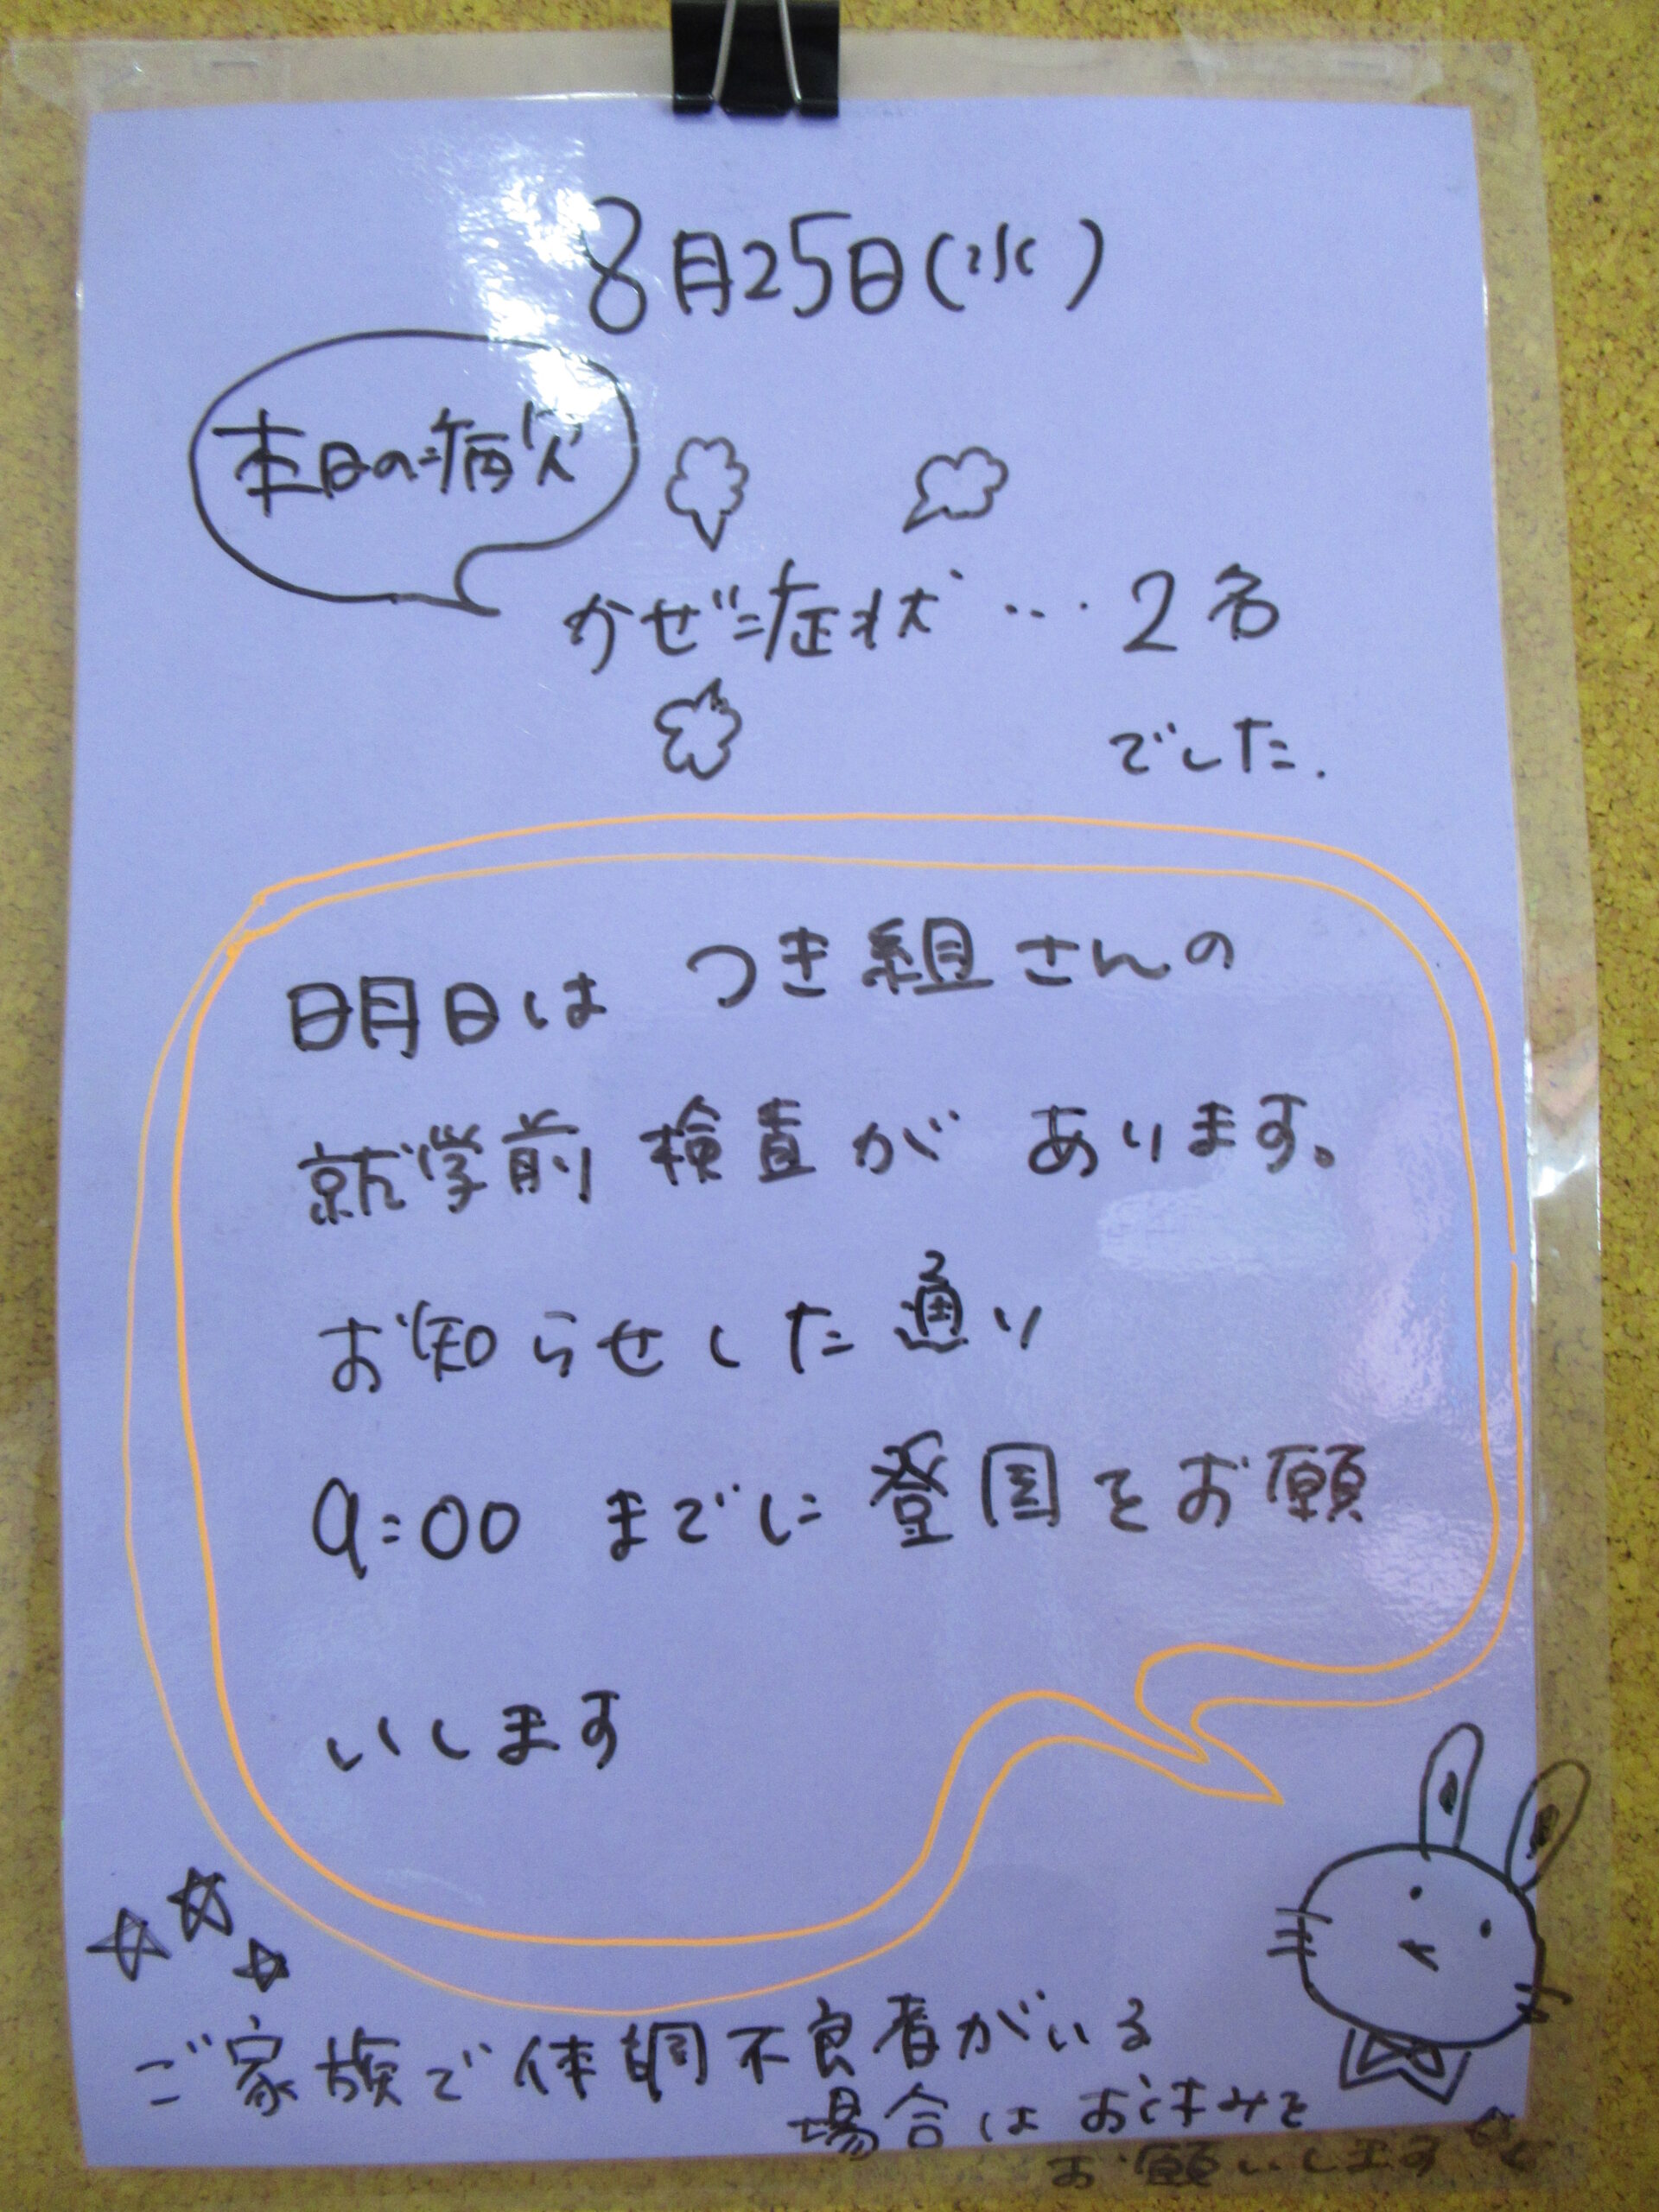 8月25日(水)
本日の病欠
かぜ症状…2名
でした.
明日は つき組さんの
就学前検査が あります。
お知らせした通り
9:00 までに登園をお願
いします
ご家族で体調不良者がいる
場合はお休みを
お願いします